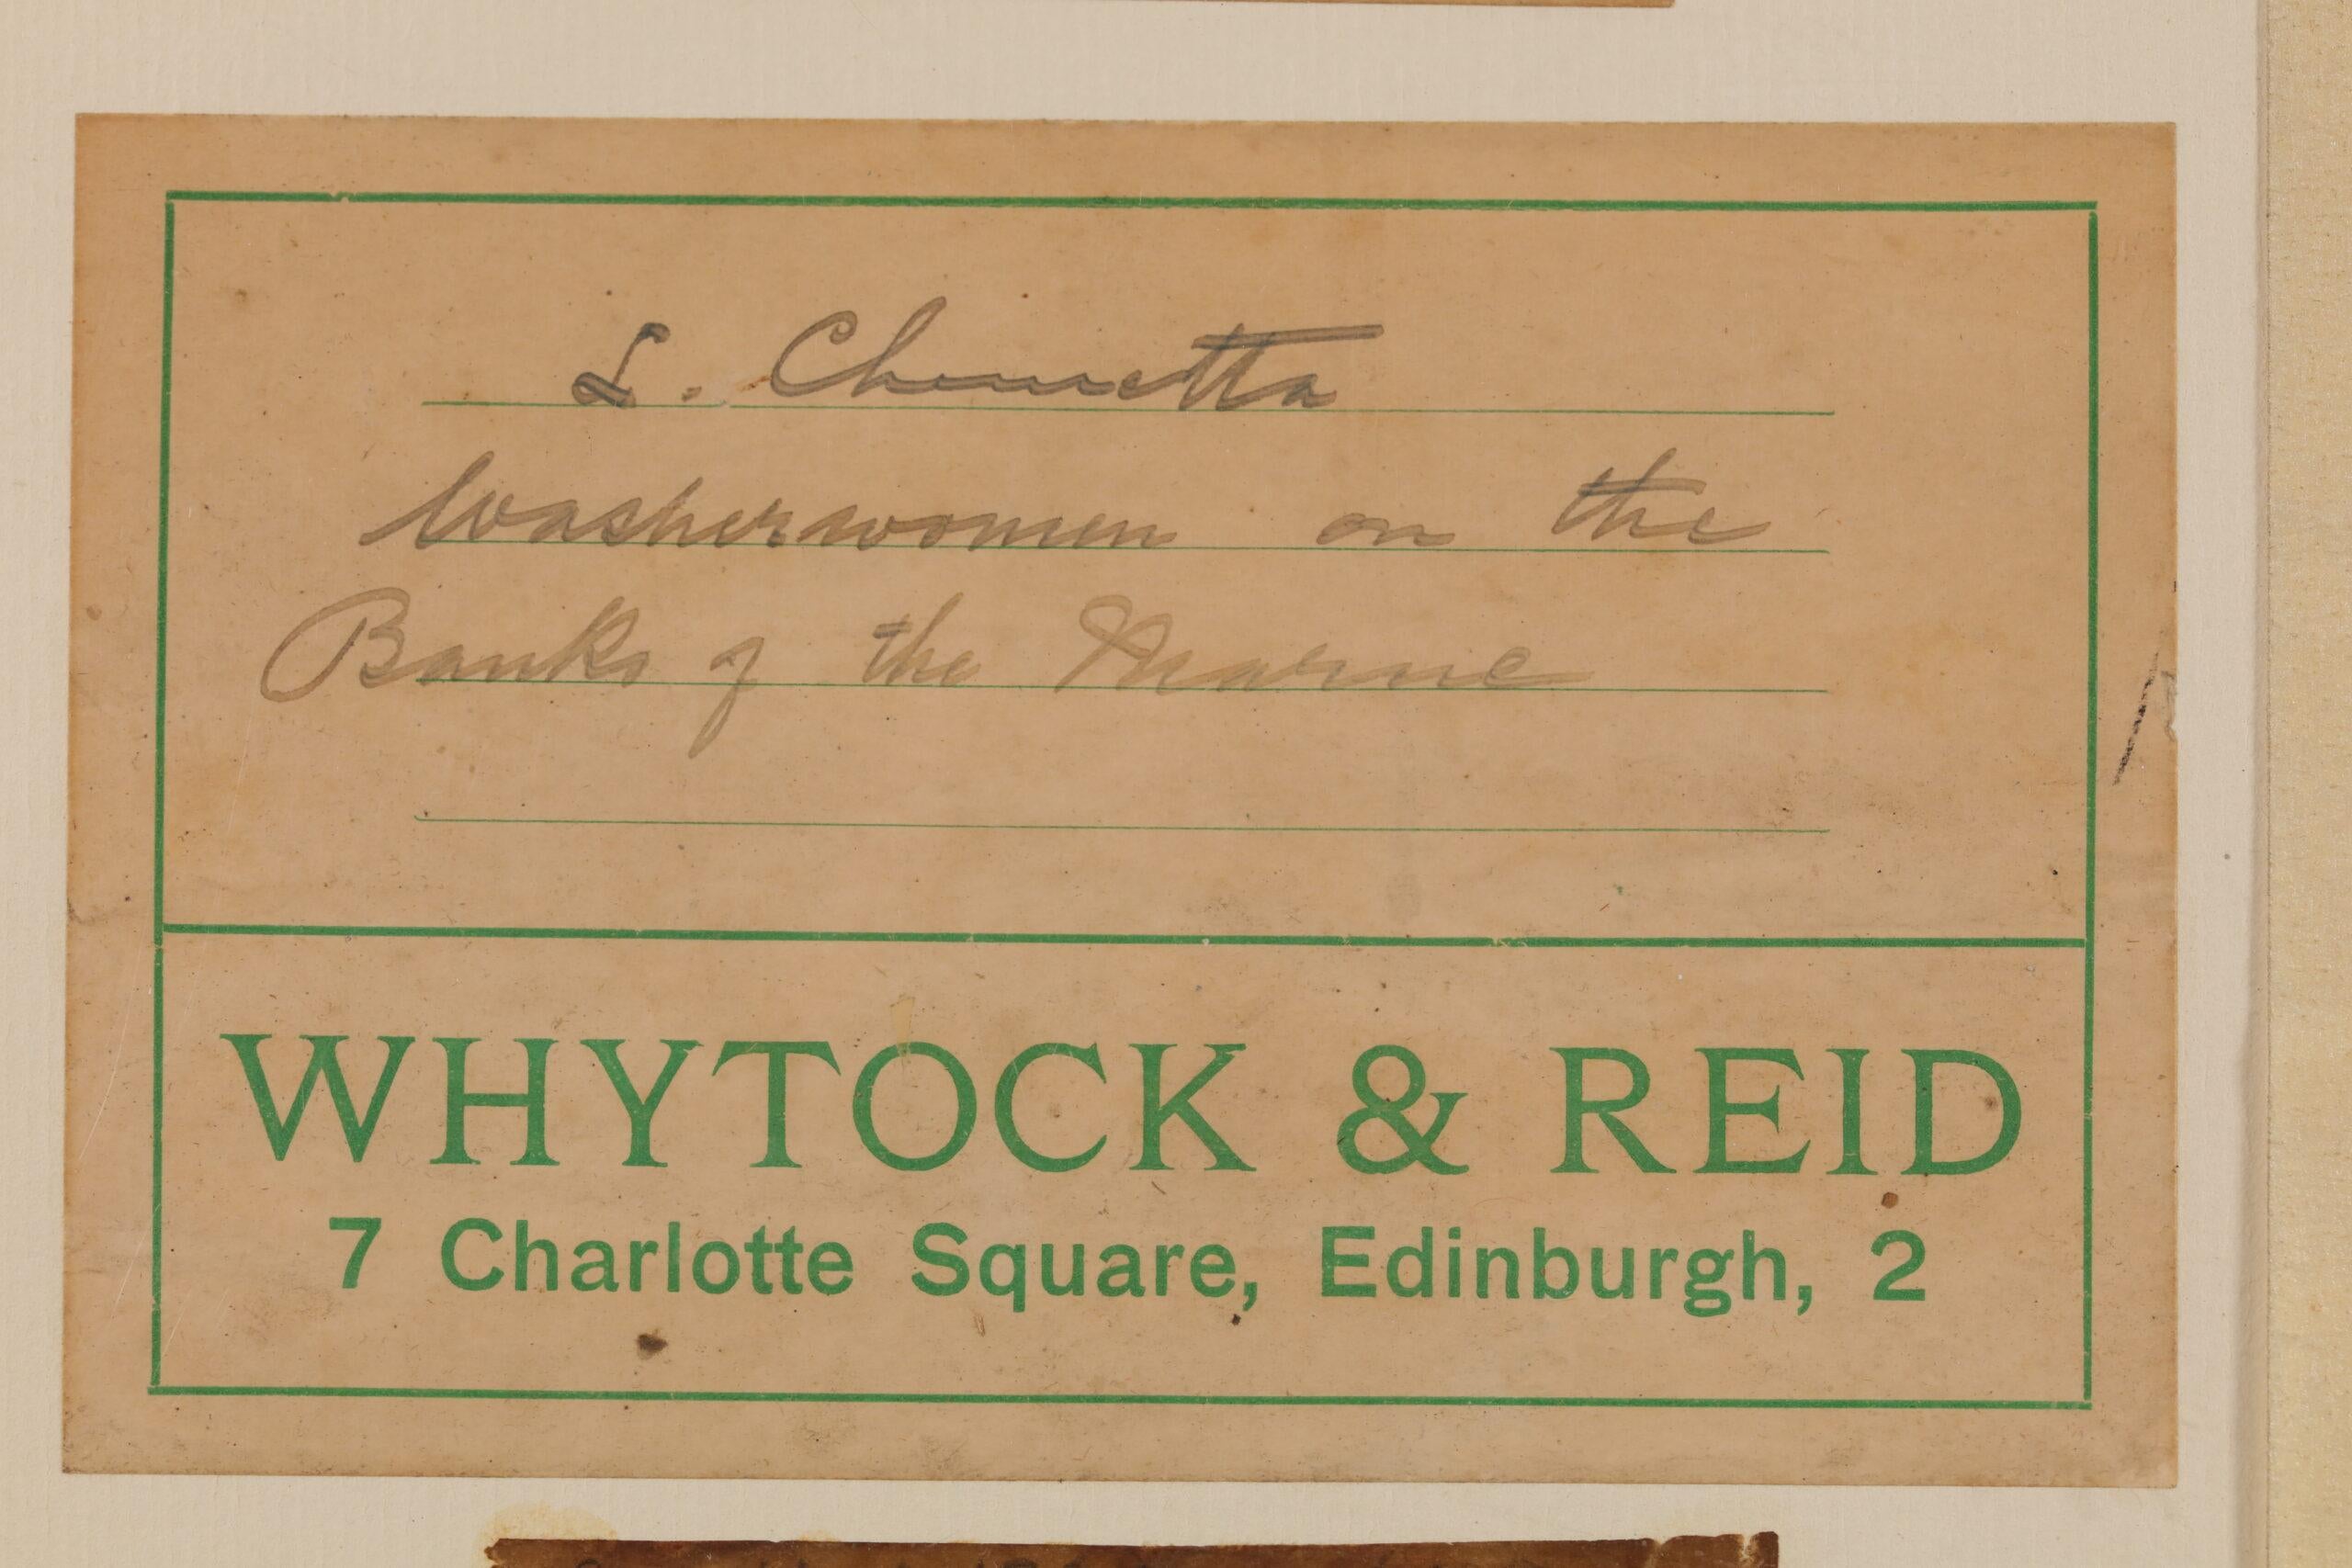 L. Lhermitte
Washerwomen on the
Banks of the Marne
WHYTOCK & REID
7 Charlotte Square, Edinburgh, 2